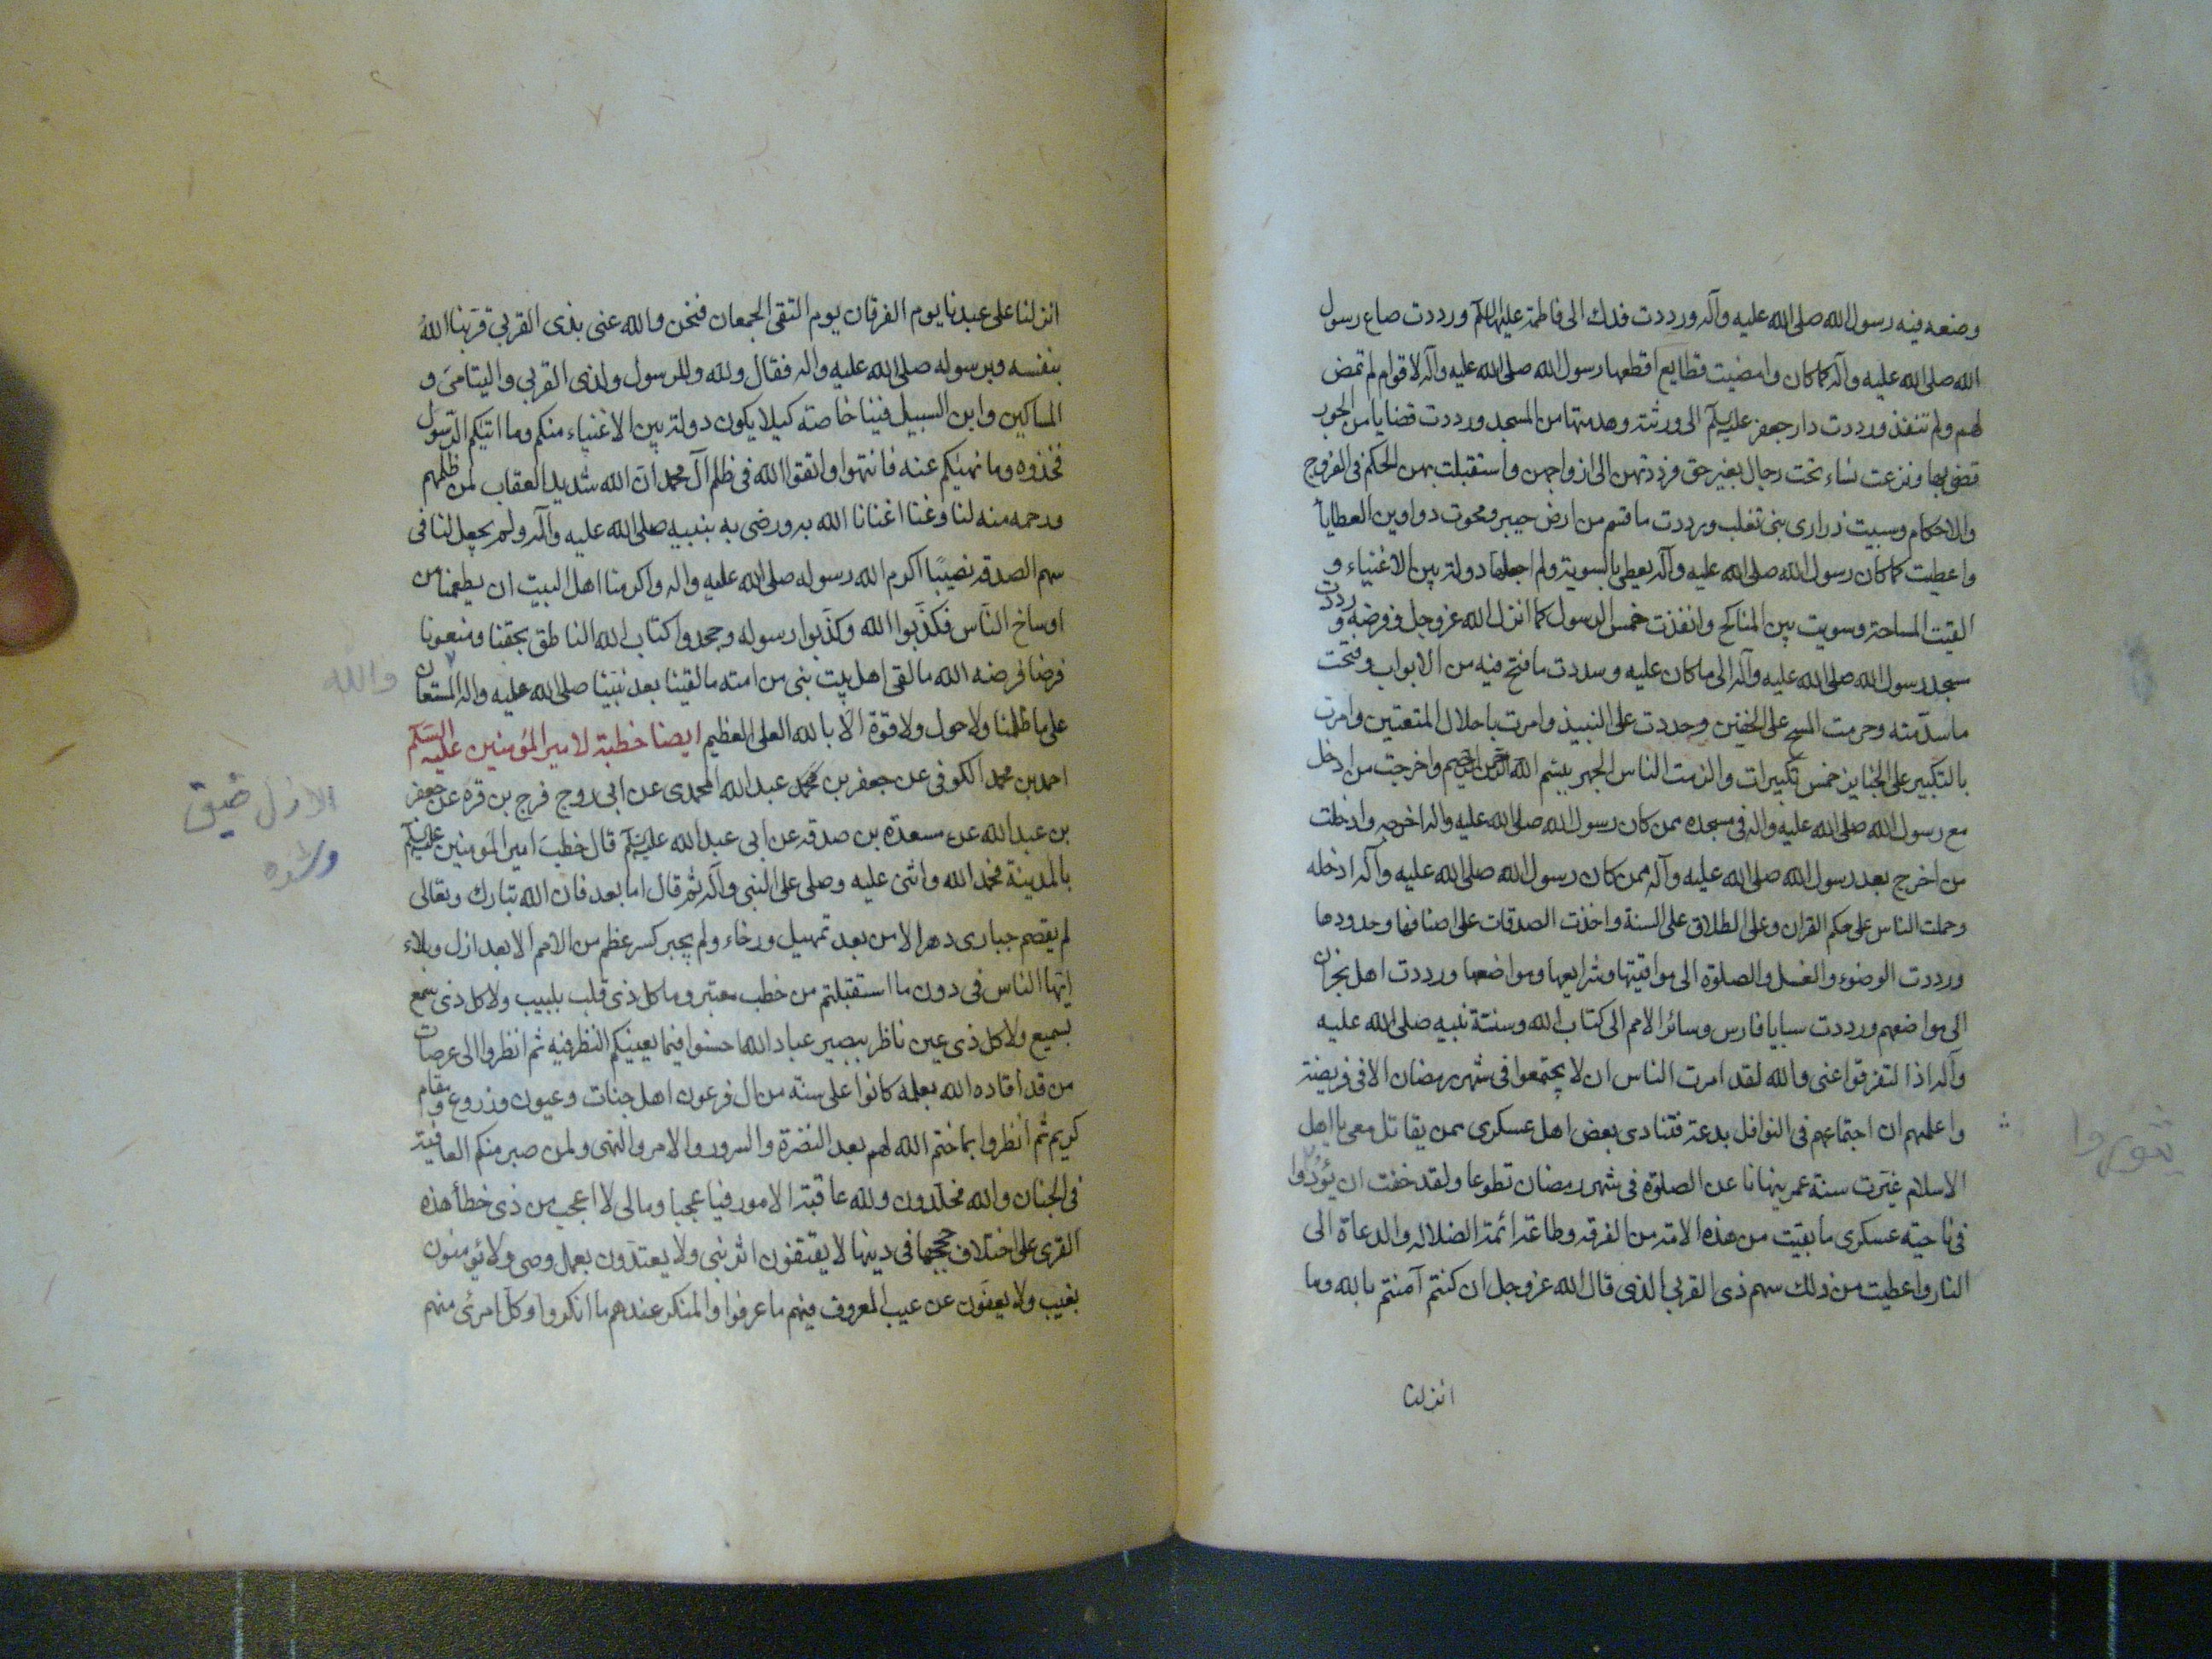 وضعه فيه رسول الله صلى الله عليه وآله ورددت فدك الى فاطمة عليها السلم ورددت صاع رسول
الله صلى الله عليه وآله كما كان وامضيت قطايع اقطعها رسول الله صلى الله عليه وآله لاقوام لم تمض
لهم ولم تنفذ ورددت دار جعفر عليه السلم الى ورثته وهدمتها من المسجد ورددت قضايا من الجور
قضى بها ونزعت نساء تحت رجال بغير حق فرددتهن الى ازواجهن واستقبلت بهن الحكم فى الفروج
والاحكام وسبيت ذرارى بنى تغلب ورددت ما قسم من ارض خيبر ومحوت دواوين العطايا
واعطيت كما كان رسول الله صلى الله عليه وآله يعطى بالسوية ولم اجعلها دولة بين الاغنياء و
القيت المساحة وسويت بين المناكح وانفذت خمس الرسول كما انزل الله عز وجل وفرضه ورددت
مسجد رسول الله صلى الله عليه وآله الى ما كان عليه وسددت ما فتح فيه من الابواب وفتحت
ما سد منه وحرمت المسح على الخفين وحددت على النبيذ وامرت باحلال المتعتين وامرت
بالتكبير على الجنايز خمس تكبيرات والزمت الناس الجهر ببسم الله الرحمن الرحيم واخرجت من ادخل
مع رسول الله صلى الله عليه واله فى مسجده ممن كان رسول الله صلى الله عليه واله اخرجه وادخلت
من اخرج بعد رسول الله صلى الله عليه وآله ممن كان رسول الله صلى الله عليه وآله ادخله
وحملت الناس على حكم القران وعلى الطلاق على السنة واخذت الصدقات على اصنافها وحدودها
ورددت الوضوء والغسل والصلوة الى مواقيتها وشرايعها ومواضعها ورددت اهل نجران
الى مواضعهم ورددت سبايا فارس وسائر الامم الى كتاب الله وسنة نبيه صلى الله عليه
وآله اذا لتفرقوا عنى والله لقد امرت الناس ان لا يجتمعوا فى شهر رمضان الا فى فريضة
واعلمتهم ان اجتماعهم فى النوافل بدعة فتنادى بعض اهل عسكرى ممن يقاتل معى يا اهل
الاسلام غيرت سنة عمر ينهانا عن الصلوة فى شهر رمضان تطوعا ولقد خفت ان
يثوروا
فى ناحية عسكرى ما بقيت من هذه الامة من الفرقه وطاعة ائمة الضلاله والدعاة الى
النار واعطيت من ذلك سهم ذى القربى الذى قال الله عز وجل ان كنتم آمنتم بالله وما
انزلنا
انزلنا على عبدنا يوم الفرقان يوم التقى الجمعان فنحن والله عنى بذى القربى قرننا الله
بنفسه وبرسوله صلى الله عليه واله فقال ولله وللرسول ولذى القربى واليتامى و
المساكين وابن السبيل فينا خاصة كيلا يكون دولة بين الاغنياء منكم وما اتيكم الرسول
فخذوه وما نهيكم عنه فانتهوا واتقوا الله فى ظلم آل محمد ان الله شديد العقاب لمن ظلمهم
ورحمه منه لنا وغنا اغنانا الله به ورضى به نبيه صلى الله عليه وآله ولم يجعل لنا فى
سهم الصدقه نصيبا اكرم الله رسوله صلى الله عليه واله واكرمنا اهل البيت ان يطعمنا من
اوساخ الناس فكذبوا الله وكذبوا رسوله وجحدوا كتاب الله الناطق بحقنا ومنعونا
فرضا فرضه الله ما لقى اهل بيت نبى من امته ما لقينا بعد نبينا صلى الله عليه واله المستعان
والله
على ما ظلمنا ولا حول ولا قوة الا بالله العلى العظيم ايضا خطبة لامير المؤمنين عليه السلم
احمد بن محمد الكوفى عن جعفر بن محمد عبد الله المحمدى عن ابى روح فرج بن قره عن جعفر
بن عبد الله عن مسعدة بن صدقه عن ابى عبد الله عليه السلم قال خطب امير المؤمنين عليه السلم
بالمدينة فحمد الله واثنى عليه وصلى على النبى وآله ثم قال اما بعد فان الله تبارك وتعالى
لم يقصم جبارى دهر الا من بعد تمهيل ورخاء ولم يجبر كسر عظم من الامم الا بعد ازل وبلاء
الازل ضيق
وشده
ايها الناس فى دون ما استقبلتم من خطب معتبر وما كل ذى قلب بلبيب ولا كل ذى سمع
بسميع ولا كل ذى عين ناظر ببصير عباد الله احسنوا فيما يعنيكم النظر فيه ثم انظروا الى عرصات
من قد اقاده الله بعلمه كانوا على سنة من ال فرعون اهل جنات وعيون وزروع ومقام
كريم ثم انظروا بما ختم الله لهم بعد النضرة والسرور والامر والنهى ولمن صبر منكم العاقبة
فى الجنان والله مخلدون ولله عاقبة الامور فيا عجبا ومالى لا اعجب من ذى خطأ هذه
القرى على اختلاف حججها فى دينها لا يقتفون اثر نبى ولا يعتدون بعمل وصى ولا يؤمنون
بغيب ولا يعفون عن عيب المعروف فيهم ما عرفوا والمنكر عندهم ما انكروا وكل امرئ منهم